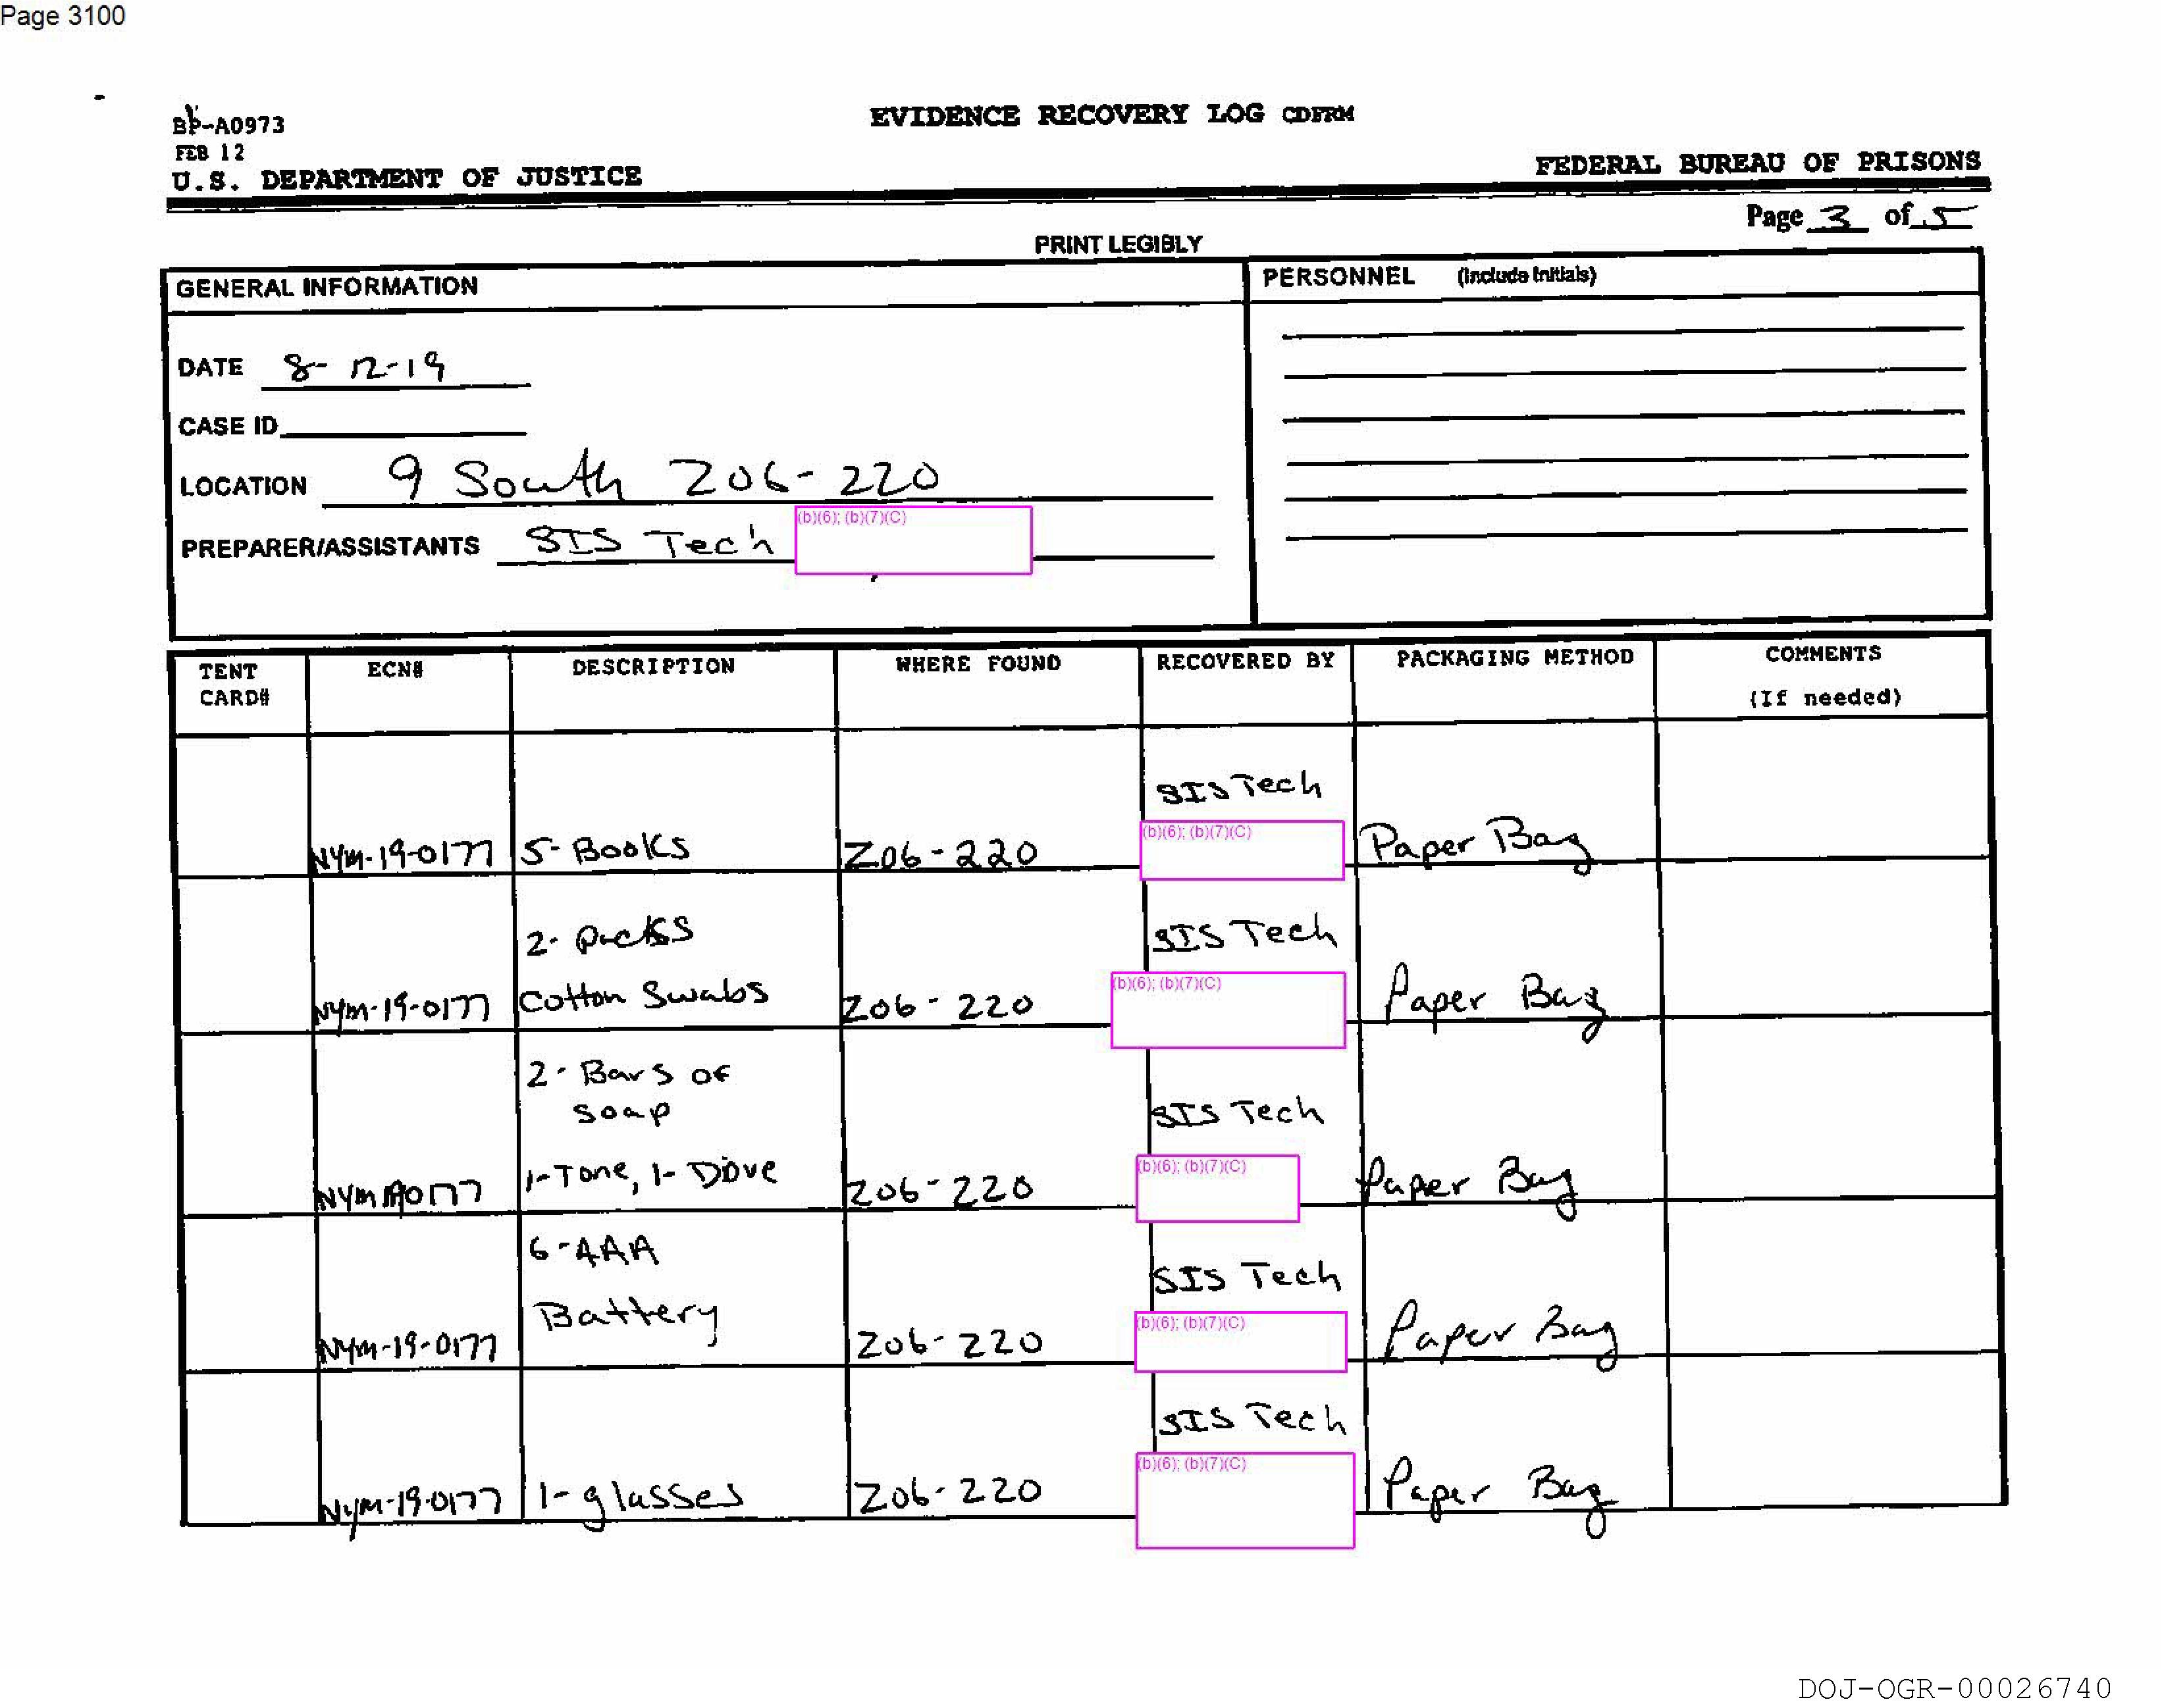 Page 3100
BP-A0973
EVIDENCE RECOVERY LOG CDFRM
FEB 12
U.S. DEPARTMENT OF JUSTICE
FEDERAL BUREAU OF PRISONS
Page 3 of 5
PRINT LEGIBLY
GENERAL INFORMATION
PERSONNEL (Include Initials)
DATE 8-12-19
CASE ID
LOCATION 9 South Z06-220
PREPARER/ASSISTANTS SIS Tech (b)(6); (b)(7)(C)
TENT CARD# ECN# DESCRIPTION WHERE FOUND RECOVERED BY PACKAGING METHOD COMMENTS (If needed)
SIS Tech
(b)(6); (b)(7)(C)
NYM-19-0177 5-Books Z06-220 Paper Bag
2-Packs SIS Tech
(b)(6); (b)(7)(C)
NYM-19-0177 Cotton Swabs Z06-220 Paper Bag
2-Bars of
soap SIS Tech
(b)(6); (b)(7)(C)
NYM190177 1-Tone, 1-Dove Z06-220 Paper Bag
6-AAA SIS Tech
Battery (b)(6); (b)(7)(C)
NYM-19-0177 Z06-220 Paper Bag
SIS Tech
(b)(6); (b)(7)(C)
NYM-19-0177 1-glasses Z06-220 Paper Bag
DOJ-OGR-00026740